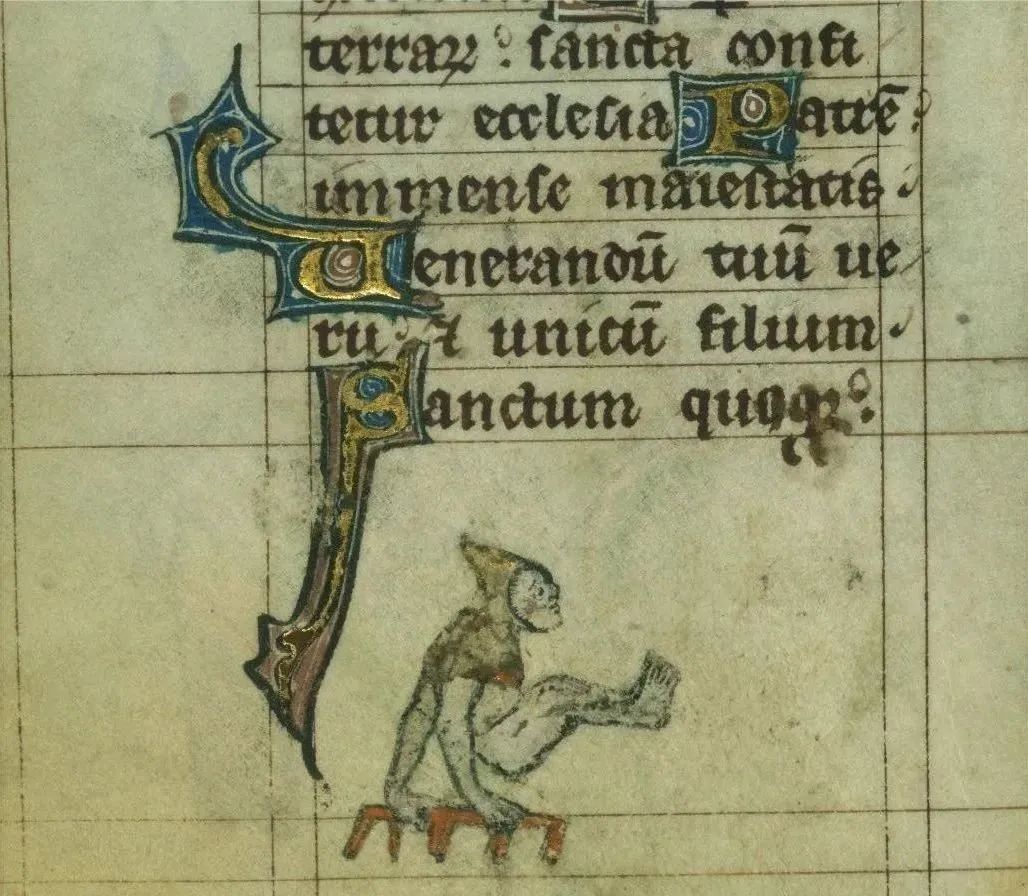 terraꝝ : sancta confi
tetur ecclesia Patrē :
immense maiestatis .
Uenerandū tuū ue
ru : ⁊ unicū filium .
Sanctum quoqꝫ :